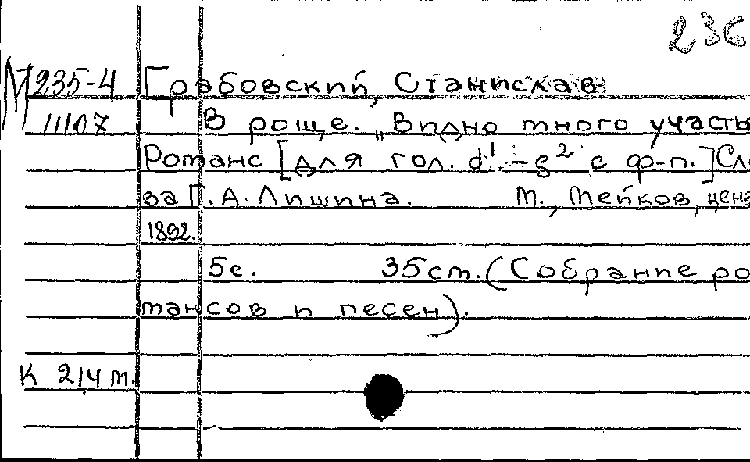 236
М 235-4 Грабовский, Станислав
11107 В роще. „Видно много участь
Романс [для гол. d¹-g² с ф-п.] Сло
ва Г. А. Лишина. М., Мейков, ценз
1892.
5с. 35см. (Собрание ро
мансов и песен).
К 214 т.